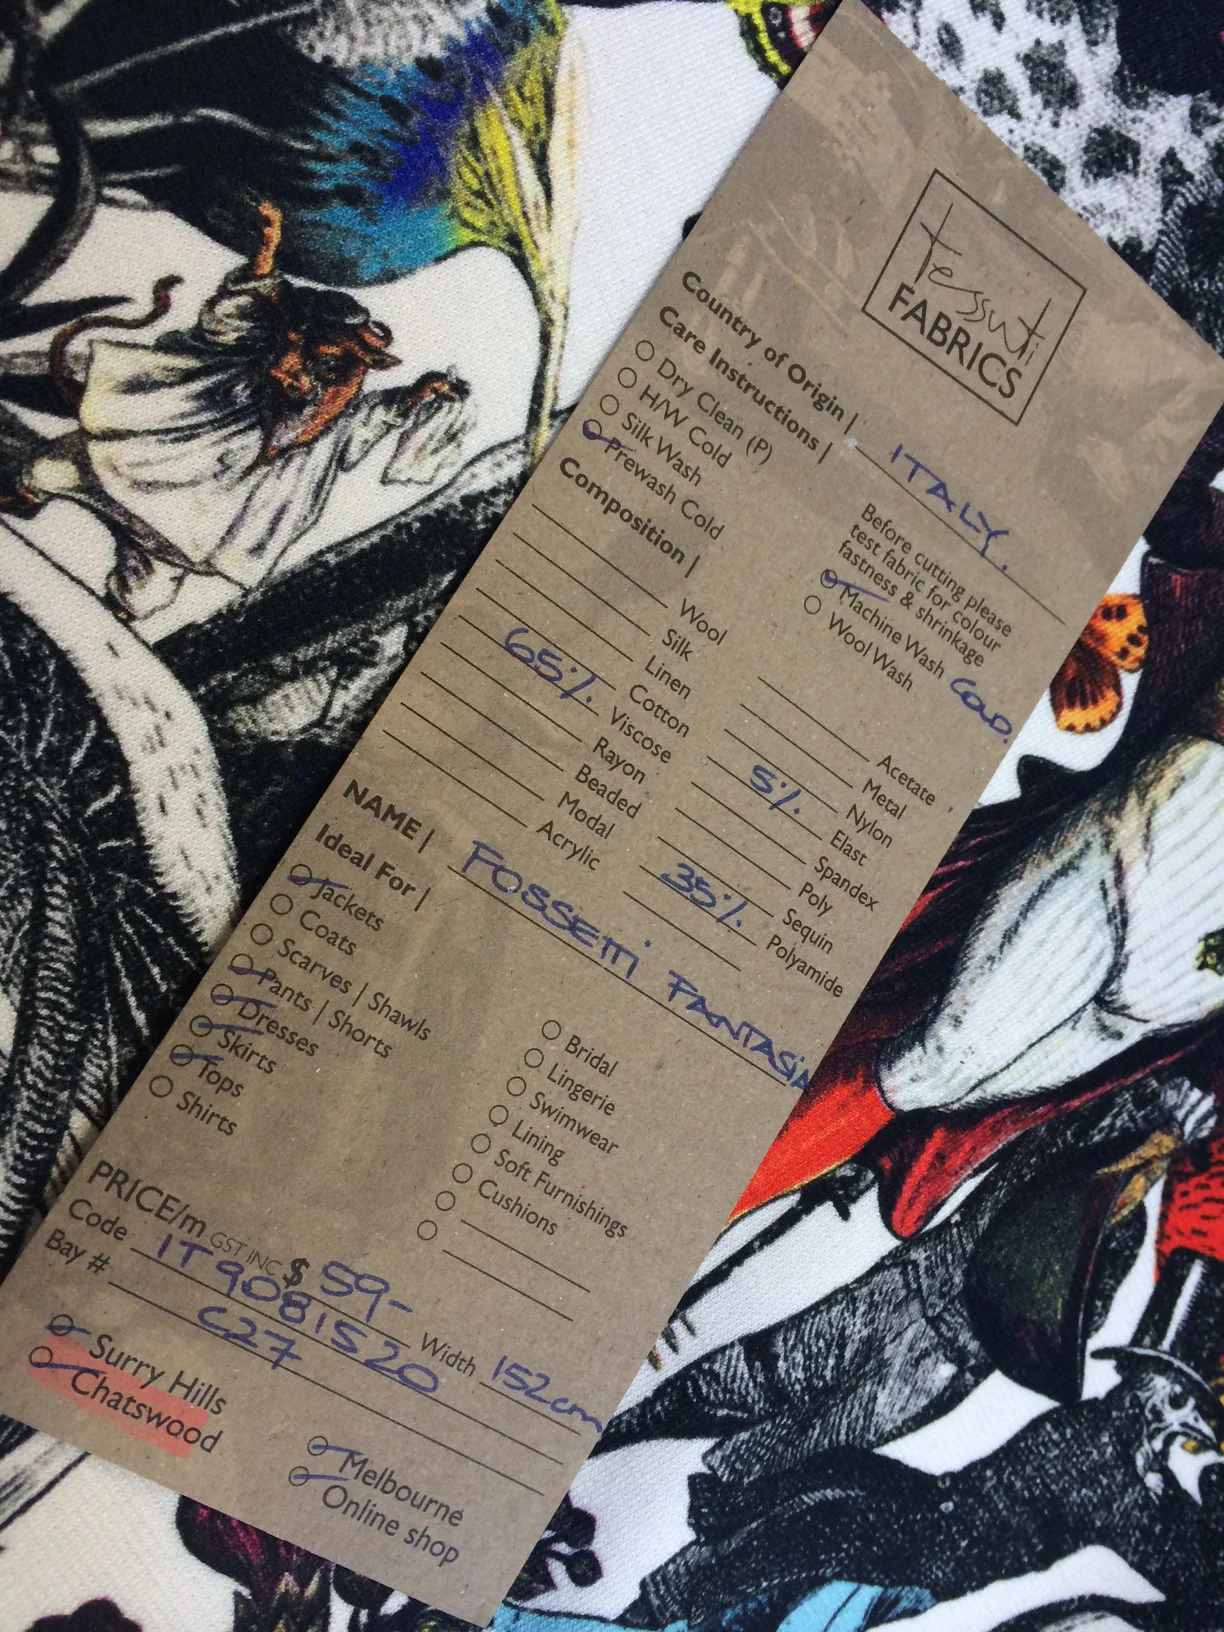 tessuti
FABRICS
Country of Origin | ITALY.
Care Instructions |
Dry Clean (P)
H/W Cold
Silk Wash
Prewash Cold
Before cutting please
test fabric for colour
fastness & shrinkage
Machine Wash COLD.
Wool Wash
Composition |
Wool
Silk
Linen
Cotton
65% Viscose
Rayon
Beaded
Modal
Acrylic
Acetate
Metal
Nylon
5% Elast
Spandex
Poly
Sequin
35% Polyamide
NAME | FOSSETTI FANTASIA
Ideal For |
Jackets
Coats
Scarves | Shawls
Pants | Shorts
Dresses
Skirts
Tops
Shirts
Bridal
Lingerie
Swimwear
Lining
Soft Furnishings
Cushions
PRICE/m GST INC $ 59- Width 152cm
Code IT9081520
Bay # C27
Surry Hills
Chatswood
Melbourne
Online shop